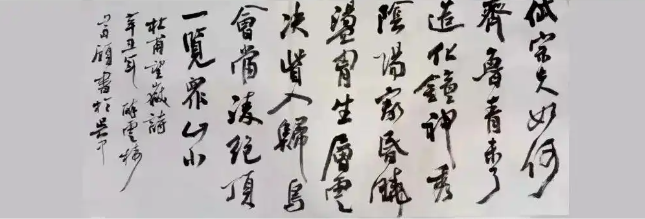 岱宗夫如何
齊魯青未了
造化鐘神秀
陰陽割昏曉
盪胷生層雲
决眥入歸鳥
會當凌絕頂
一覽眾山小
杜甫望嶽詩
辛丑年醉雲樓
書於